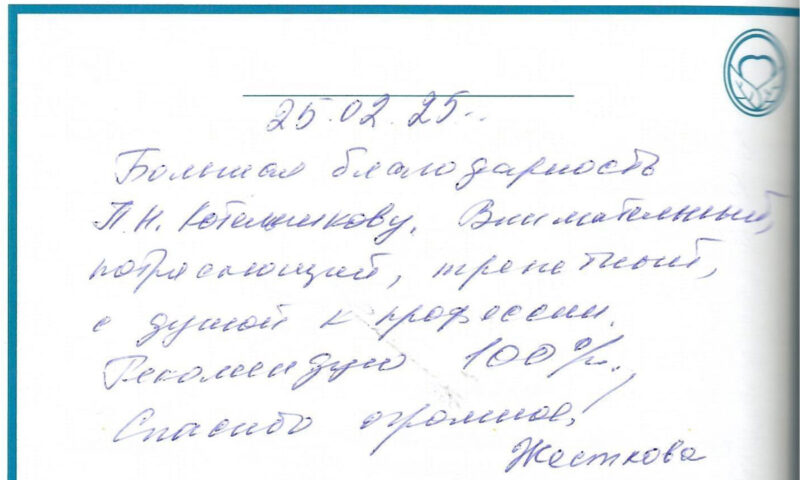 25.02.25..
Большая благодарность
П.Н. Котельникову. Внимательный,
потрясающий, трепетный,
с душой к профессии.
Рекомендую 100%.
Спасибо огромное!
Жесткова